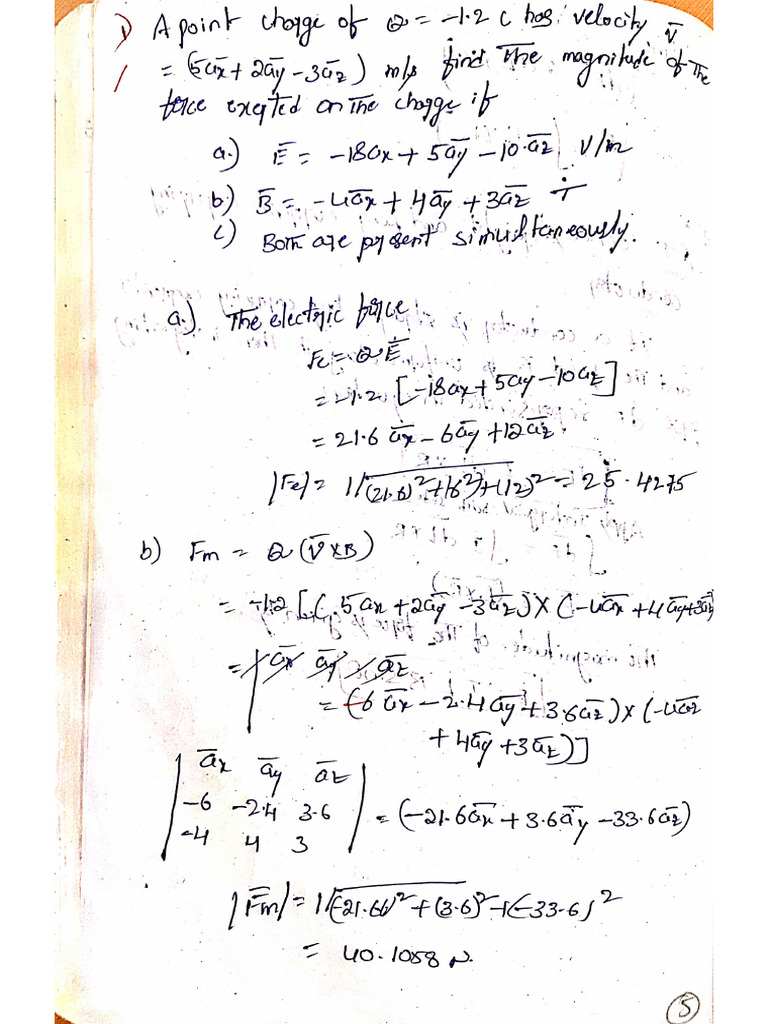 1) A point charge of Q = -1.2 C has velocity v̄
= (5āx + 2āy - 3āz) m/s find the magnitude of the
force exerted on the charge if
a.) Ē = -18āx + 5āy - 10.āz V/m
b) B̄ = -4āx + 4āy + 3āz T
c) Both are present simultaneously.
a.) The electric force
Fe = QĒ
= -1.2 [-18ax + 5ay - 10az]
= 21.6 āx - 6āy + 12āz
|Fe| = √(21.6)²+(6²)+(12)² = 25.4275
b) Fm = Q (V̄ X B)
= -1.2 [(5ax + 2āy - 3āz) X (-4āx + 4āy+3āz)
= | āx āy āz
= (-6āx - 2.4āy + 3.6āz) x (-4āx
+ 4āy + 3āz)]
| āx āy āz |
| -6 -2.4 3.6 | = (-21.6āx + 3.6āy - 33.6āz)
| -4 4 3 |
|F̄m| = √(-21.66)² + (3.6)² + (-33.6)²
= 40.1058 N.
5